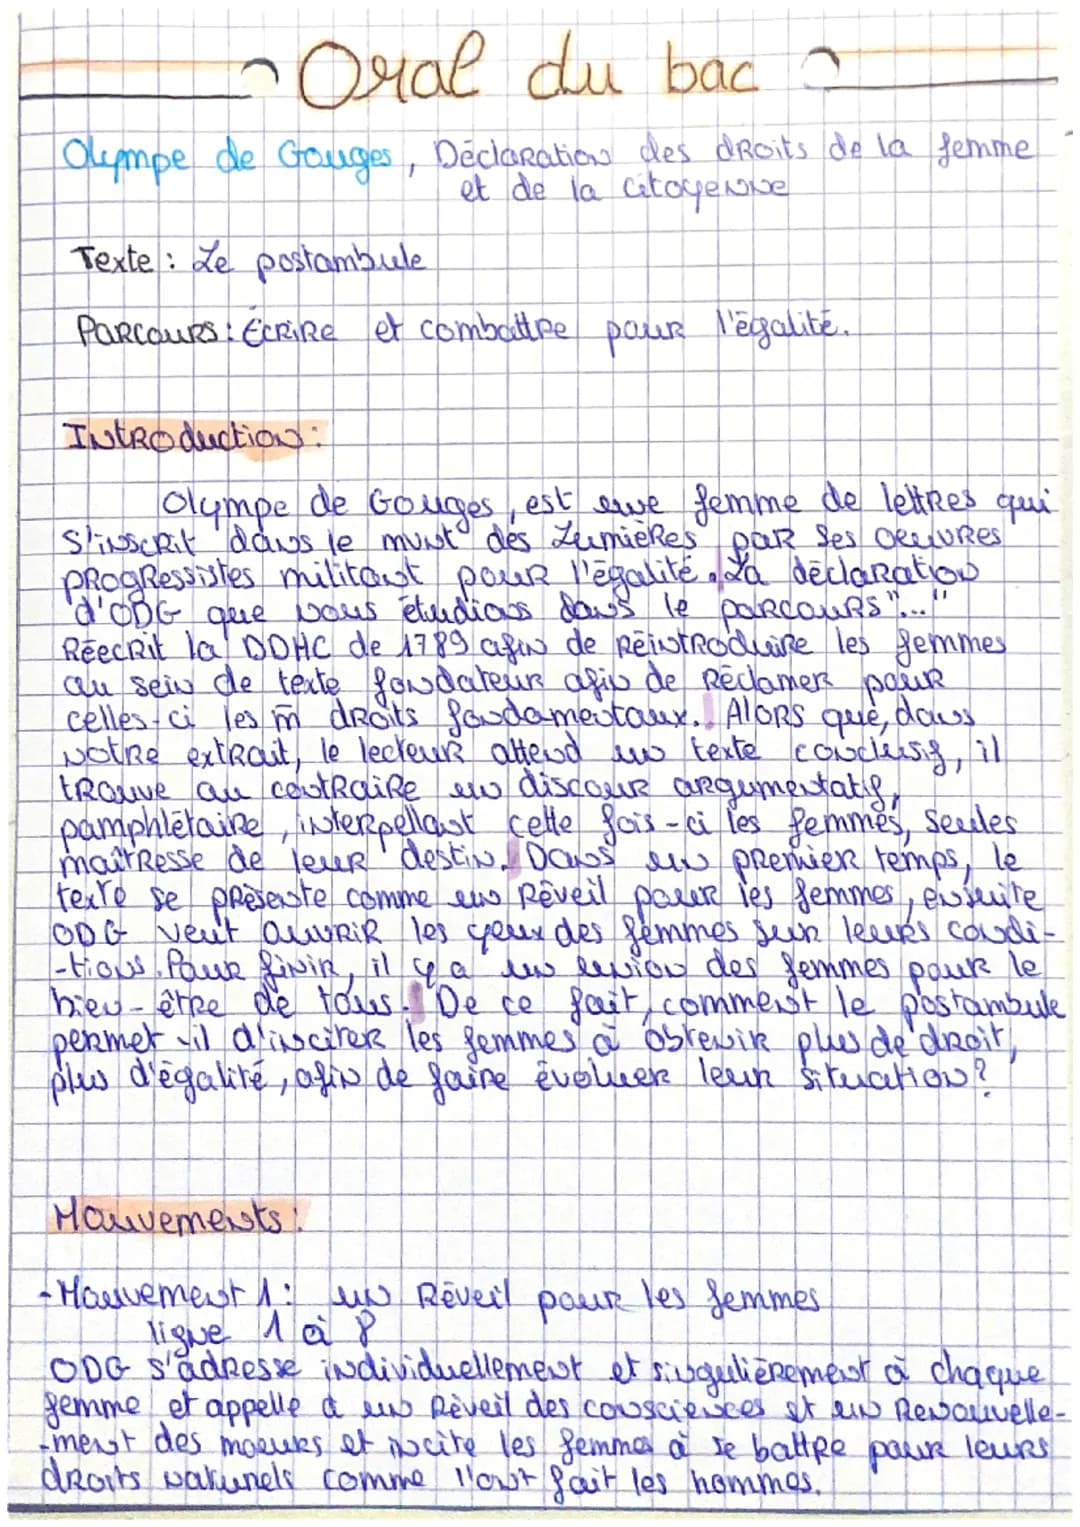 Oral du bac
Olympe de Gouges, Déclaration des droits de la femme
et de la citoyenne
Texte : Le postambule
Parcours : Écrire et combattre pour l'égalité.
Introduction :
Olympe de Gouges, est une femme de lettres qui
s'inscrit dans le mvnt des Lumières par ses oeuvres
progressistes militant pour l'égalité. La déclaration
d'ODG que nous étudions dans le parcours "..."
Réecrit la DDHC de 1789 afin de réintroduire les femmes
au sein de texte fondateur afin de réclamer pour
celles-ci les m̂ droits fondamentaux. Alors que, dans
notre extrait, le lecteur attend un texte conclusif, il
trouve au contraire un discour argumentatif,
pamphlétaire, interpellant cette fois-ci les femmes, seules
maîtresse de leur destin. Dans un premier temps, le
texte se présente comme un Réveil pour les femmes, ensuite
ODG veut ouvrir les yeux des femmes sur leurs condi-
-tions. Pour finir, il y a un union des femmes pour le
bien-être de tous. De ce fait, comment le postambule
permet-il d'inciter les femmes à obtenir plus de droit,
plus d'égalité, afin de faire évoluer leur situation?
Mouvements :
- Mouvement 1 : un Réveil pour les femmes
ligne 1 à 8
ODG s'adresse individuellement et singulièrement à chaque
femme et appelle à un Réveil des consciences et un Renouvelle-
-ment des moeurs et incite les femmes à se battre pour leurs
droits naturels comme l'ont fait les hommes.